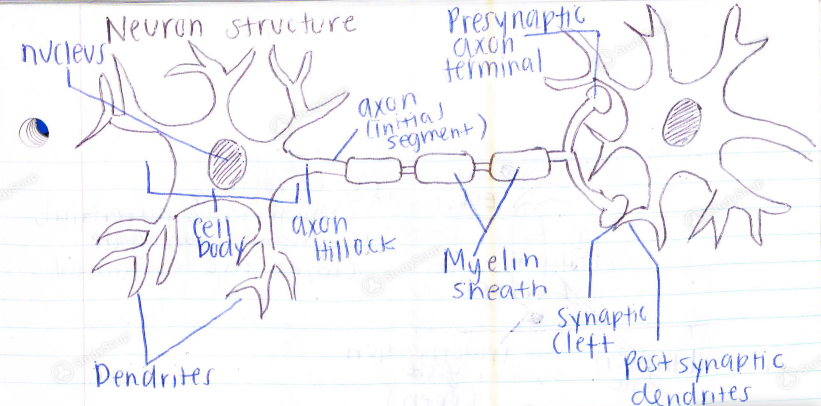 Neuron structure
nucleus
Presynaptic
axon
terminal
axon
(initial
segment)
cell
body
axon
Hillock
Myelin
sheath
synaptic
cleft
Postsynaptic
dendrites
Dendrites
StudySoup